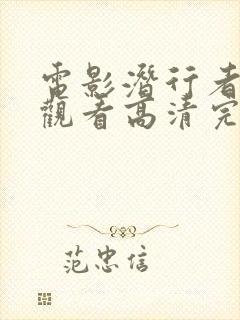 電影潛行者
觀看高清完
范忠信